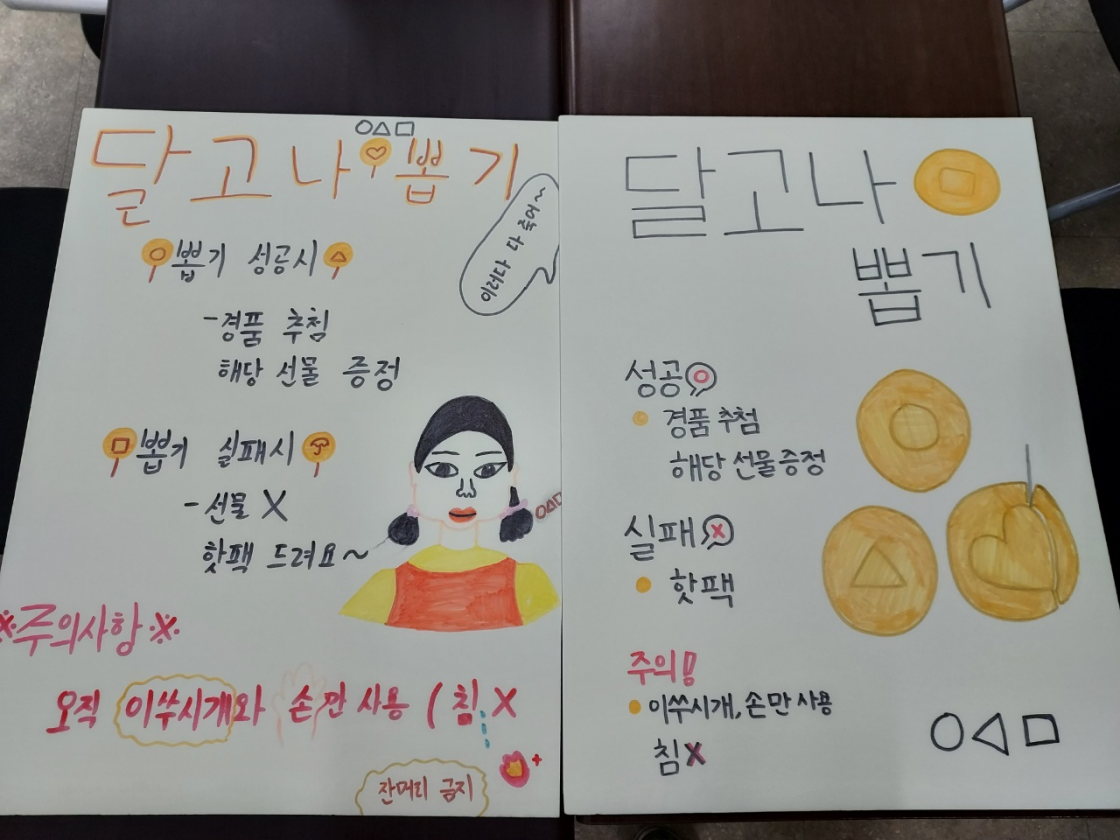 달고나 뽑기
이러다 다 죽어~
뽑기 성공시
-경품 추첨
해당 선물 증정
뽑기 실패시
-선물 X
핫팩 드려요~
※주의사항※
오직 이쑤시개와 손만 사용 (침 X
잔머리 금지
달고나
뽑기
성공
경품 추첨
해당 선물 증정
실패
핫팩
주의!!
이쑤시개, 손만 사용
침 X